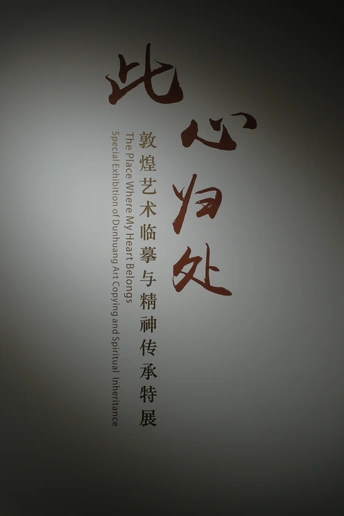 此心归处
敦煌艺术临摹与精神传承特展
The Place Where My Heart Belongs
Special Exhibition of Dunhuang Art Copying and Spiritual Inheritance